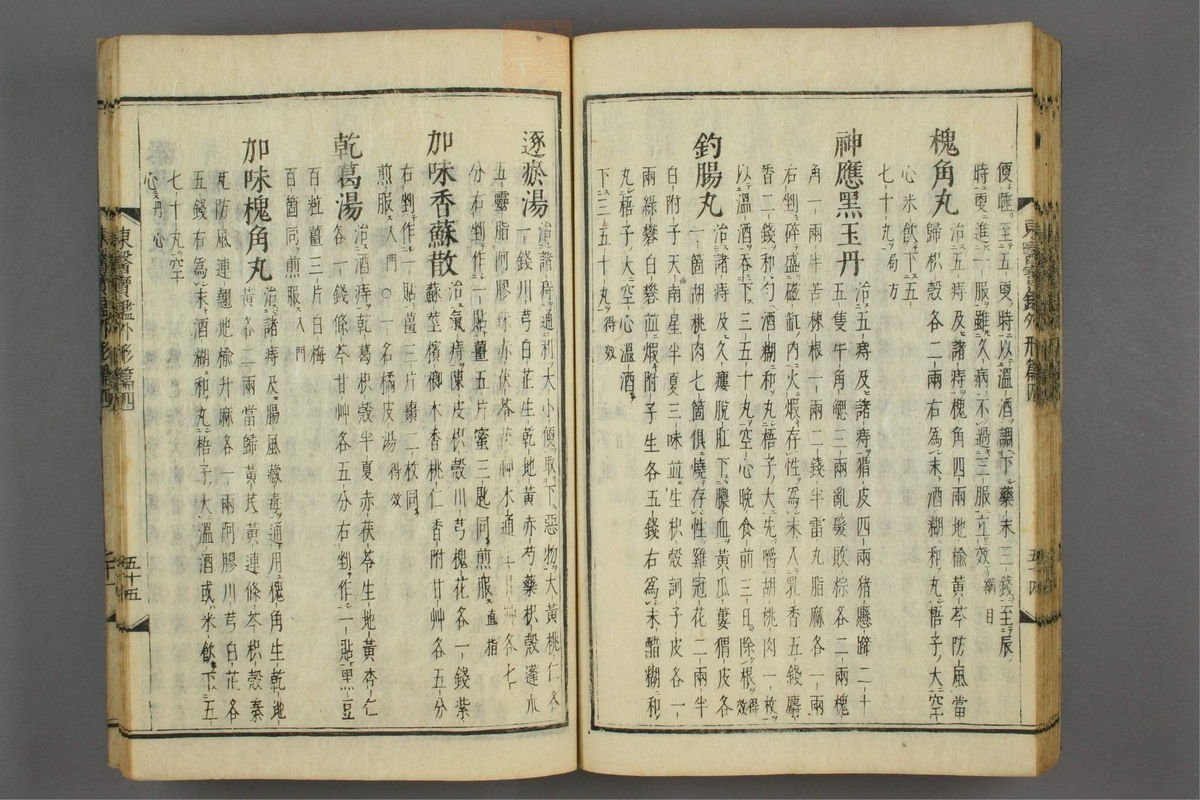 便睡至五更時以溫酒調下藥末三錢至辰
時更進一服雖久病不過三服立效 綱目
槐角丸 治五痔及諸痔槐角四兩地楡黃芩防風當
歸枳殼各二兩右爲末酒糊和丸梧子大空
心米飮下五
七十丸 局方
神應黑玉丹 治五痔及諸痔猬皮四兩猪懸蹄二十
五隻牛角䚡三兩亂髮敗棕各二兩槐
角一兩半苦楝根一兩二錢半雷丸脂麻各一兩
右剉碎盛磁缸內火煆存性爲末入乳香五錢麝
香二錢和勻酒糊和丸梧子大先嚼胡桃肉一枚
以溫酒呑下三五十丸空心晚食前三日除根 得效
釣腸丸 治諸痔及久瘻脫肛下膿血黃瓜蔞猬皮各
一箇胡桃肉七箇俱燒存性雞冠花二兩半
白附子天南星半夏三味並生枳殼訶子皮各一
兩綠礬白礬並煆附子生各五錢右爲末醋糊和
丸梧子大空心溫酒
下三五十丸 得效
逐瘀湯 治諸痔通利大小便取下惡物大黃桃仁各
一錢川芎白芷生乾地黃赤芍藥枳殼蓬朮
五靈脂阿膠赤茯苓茯神木通甘草各七
分右剉作一貼薑五片蜜三匙同煎服 直指
加味香蘇散 治氣痔陳皮枳殼川芎槐花各一錢紫
蘇莖檳榔木香桃仁香附甘艸各五分
右剉作一貼薑三片棗二枚同
煎服 入門 ○一名橘皮湯 得效
乾葛湯 治酒痔乾葛枳殼半夏赤茯苓生地黃杏仁
各一錢條芩甘艸各五分右剉作一貼黑豆
百粒薑三片白梅
百箇同煎服 入門
加味槐角丸 治諸痔及腸風藏毒通用槐角生乾地
黃各二兩當歸黃芪黃連條芩枳殼秦
艽防風連翹地楡升麻各一兩阿膠川芎白芷各
五錢右爲末酒糊和丸梧子大溫酒或米飮下五
七十丸空
心 丹心
東醫寶鑑外形篇四
五十五